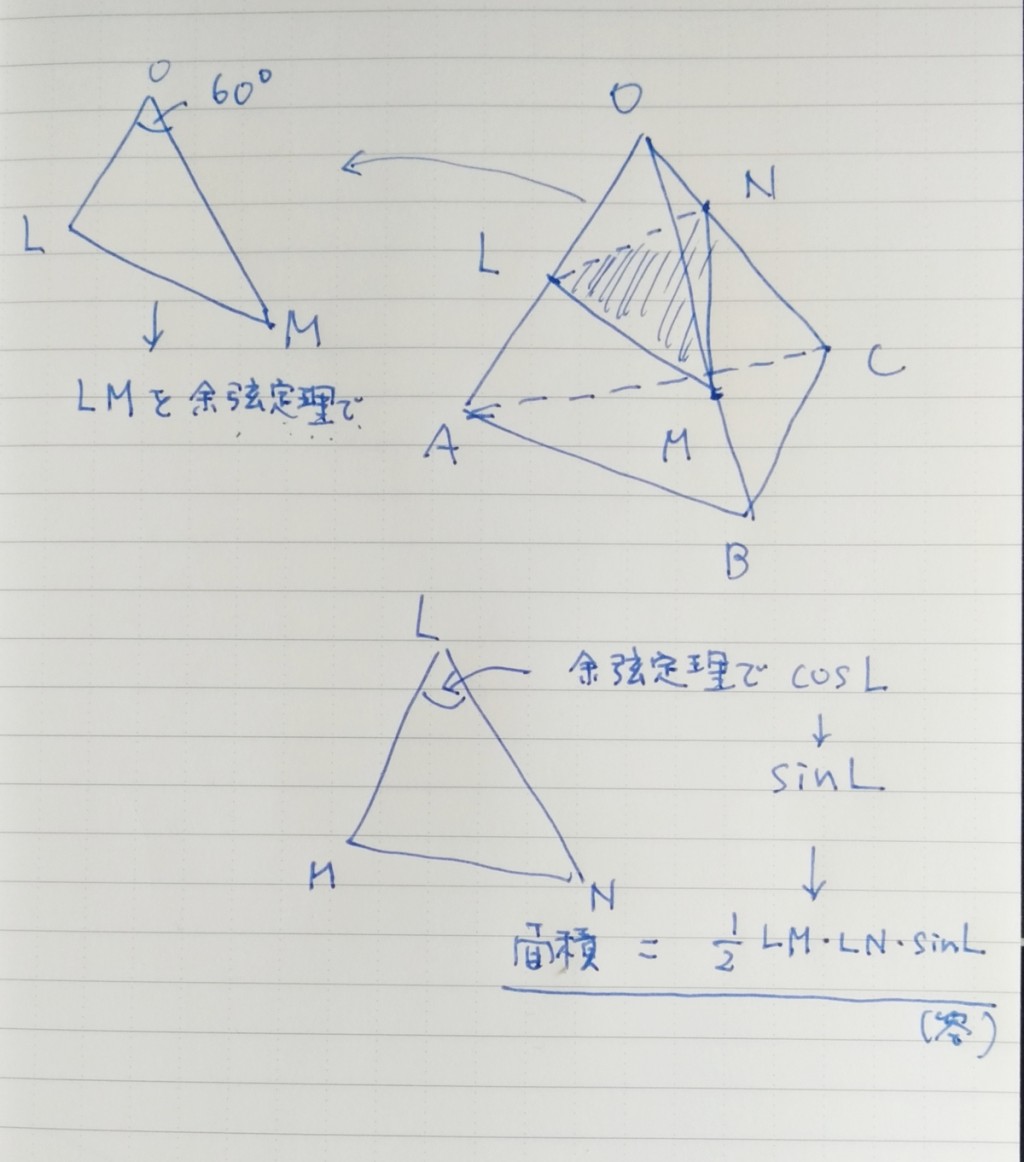 O
60°
L
M
LMを余弦定理で
O
N
L
C
A
M
B
L
余弦定理で cosL
↓
sinL
↓
M
N
面積 = 1/2 LM・LN・sinL
(答)